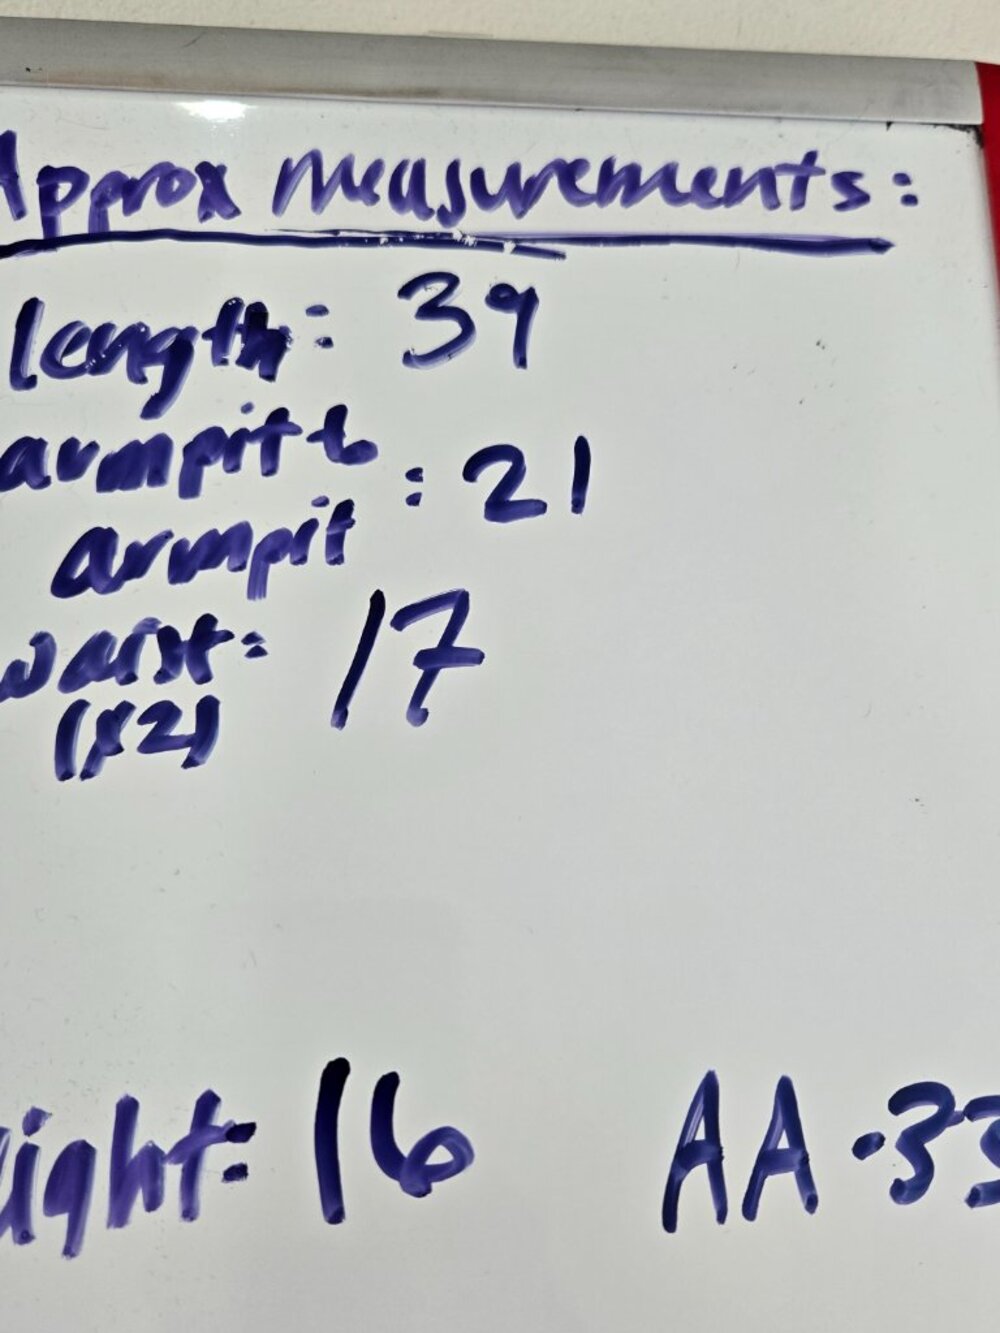 Approx Measurements:
length: 39
armpit to
armpit : 21
waist: 17
(x2)
ight: 16 AA-33